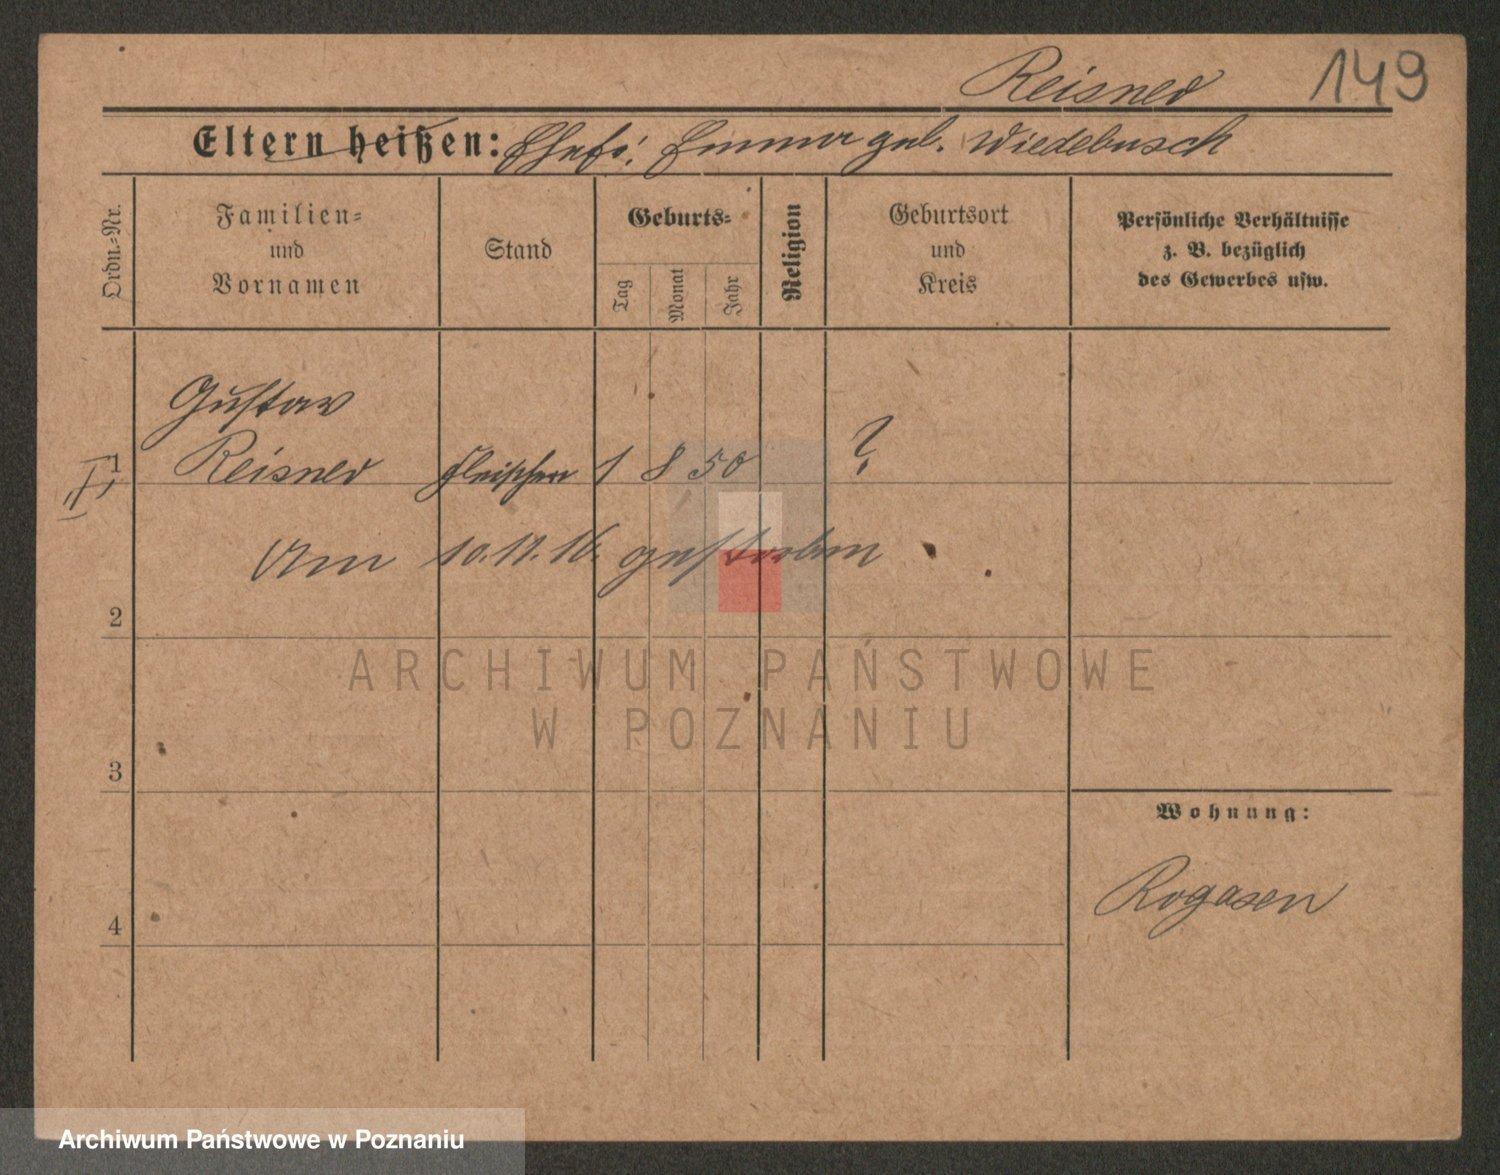 Reisner 149
Eltern heißen: Ehefr: Emma geb. Wiedebusch
Ordn.-Nr.
Familien-
und
Vornamen
Stand
Geburts-
Tag
Monat
Jahr
Religion
Geburtsort
und
Kreis
Persönliche Verhältnisse
z. B. bezüglich
des Gewerbes usw.
Gustav
1 Reisner Fleischer 1 8 50 ?
Am 10.11.16. gestorben
2
ARCHIWUM PAŃSTWOWE
W POZNANIU
3
Wohnung:
Rogasen
4
Archiwum Państwowe w Poznaniu